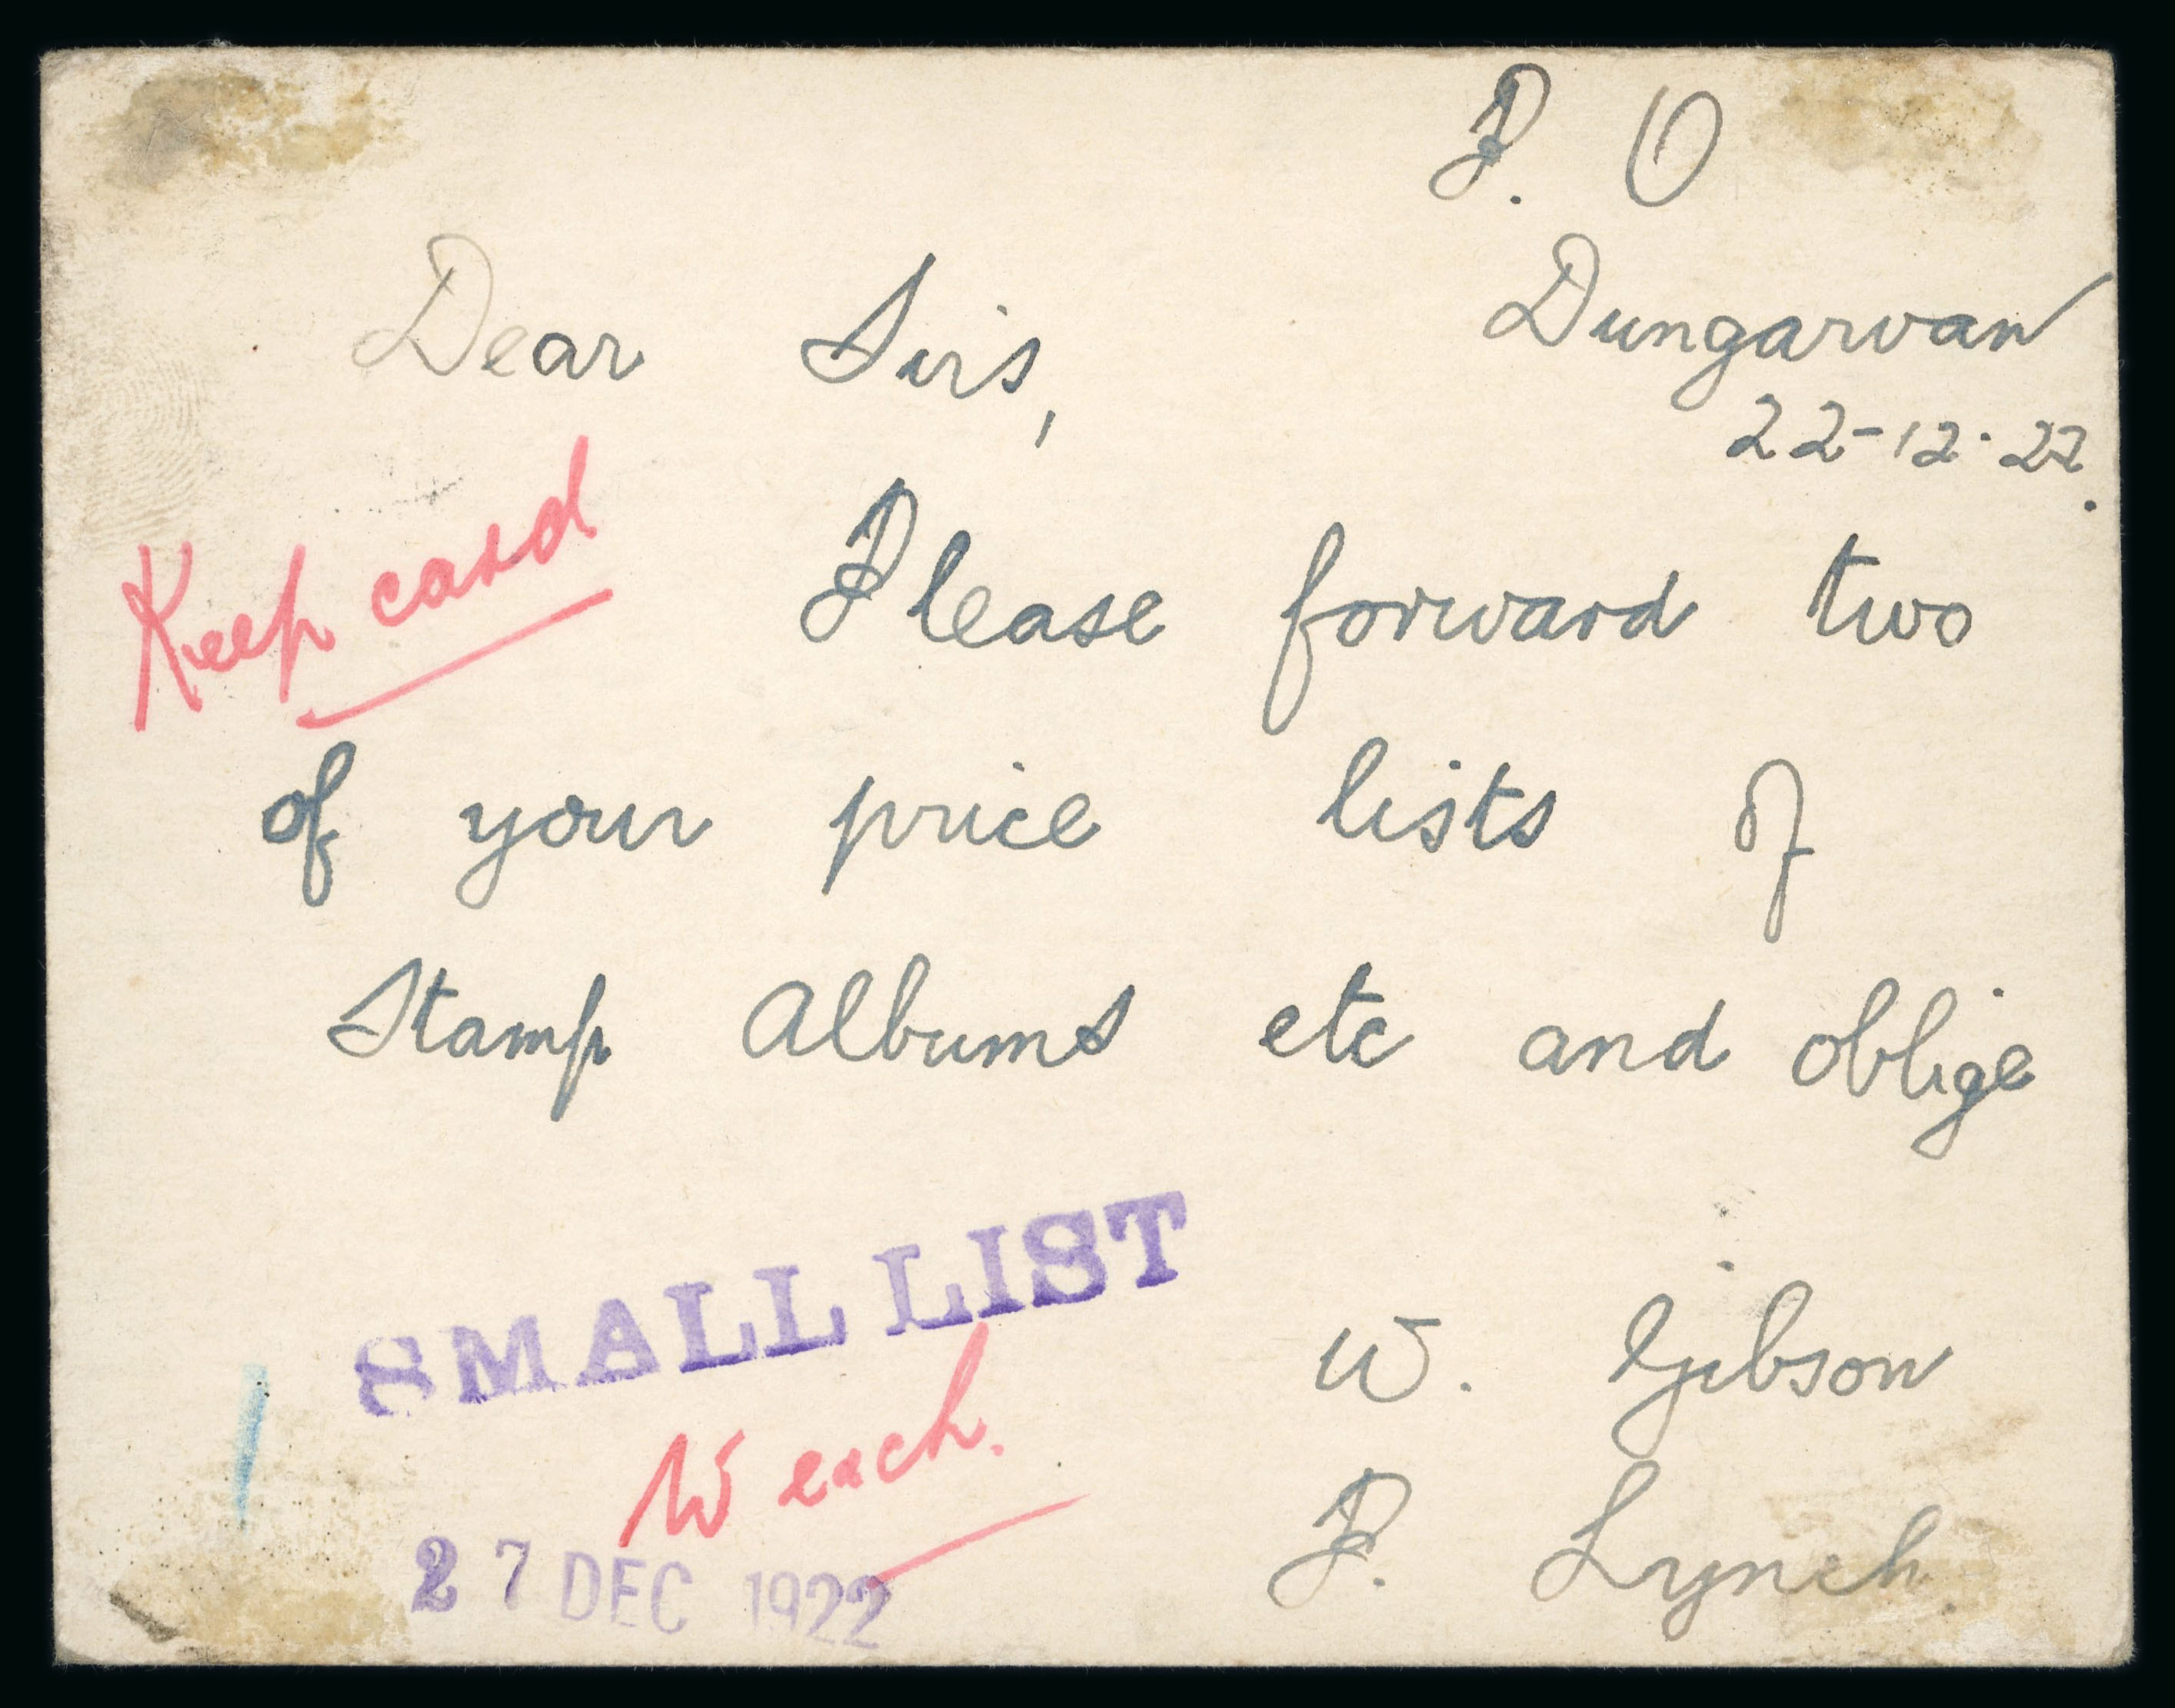 P. O
Dungarvan
22-12-22.
Dear Sirs,
Keep card
Please forward two
of your price lists of
Stamp Albums etc and oblige
SMALL LIST
W. Gibson
each.
P. Lynch
27 DEC 1922